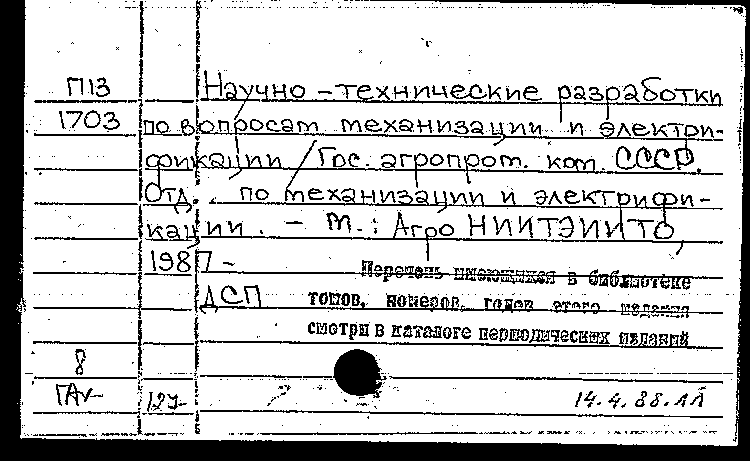 П13 Научно-технические разработки
1703 по вопросам механизации и электри-
фикации / Гос. агропром. ком. СССР.
Отд. по механизации и электрифи-
кации. - М.: АгроНИИТЭИИТО,
1987 -
Перечень имеющихся в библиотеке
ДСП томов, номеров, годов этого издания
смотри в каталоге периодических изданий
8
14.4.88.